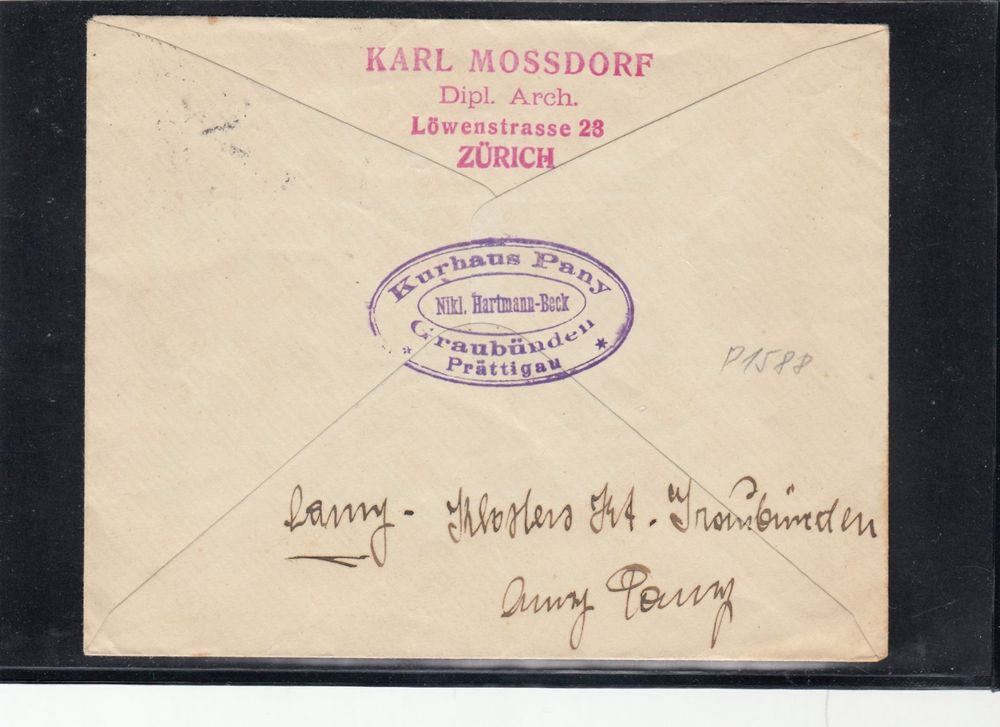 KARL MOSSDORF
Dipl. Arch.
Löwenstrasse 23
ZÜRICH
Kurhaus Pany
Nikl. Hartmann-Beck
Graubünden
* Prättigau *
P1588
Pany - Klosters Kt. Graubünden
Pany